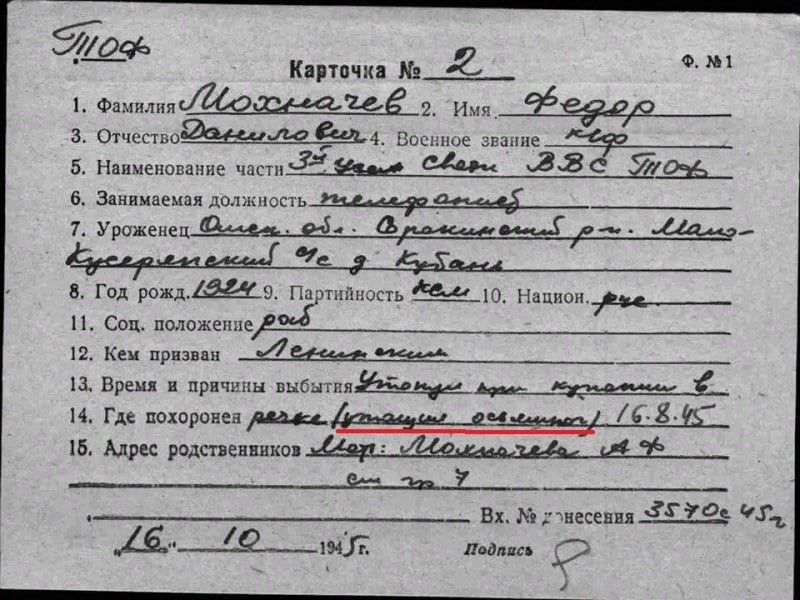 ТОФ
Карточка № 2 Ф. №1
1. Фамилия Мохначев 2. Имя Федор
3. Отчество Данилович 4. Военное звание кф
5. Наименование части 3й Связи ВВС ТОФ
6. Занимаемая должность телефонист
7. Уроженец Омск. обл. р-н. Мало-
с/с д Кубань
8. Год рожд. 1924 9. Партийность ксм 10. Национ. рус
11. Соц. положение раб
12. Кем призван Ленинским
13. Время и причины выбытия Утонул при купании в
14. Где похоронен речке (утащил осьминог) 16.8.45
15. Адрес родственников Мат: Мохначева А Ф
ст гр 7
Вх. № донесения 3570с 45г
„16“ 10 1945г. Подпись